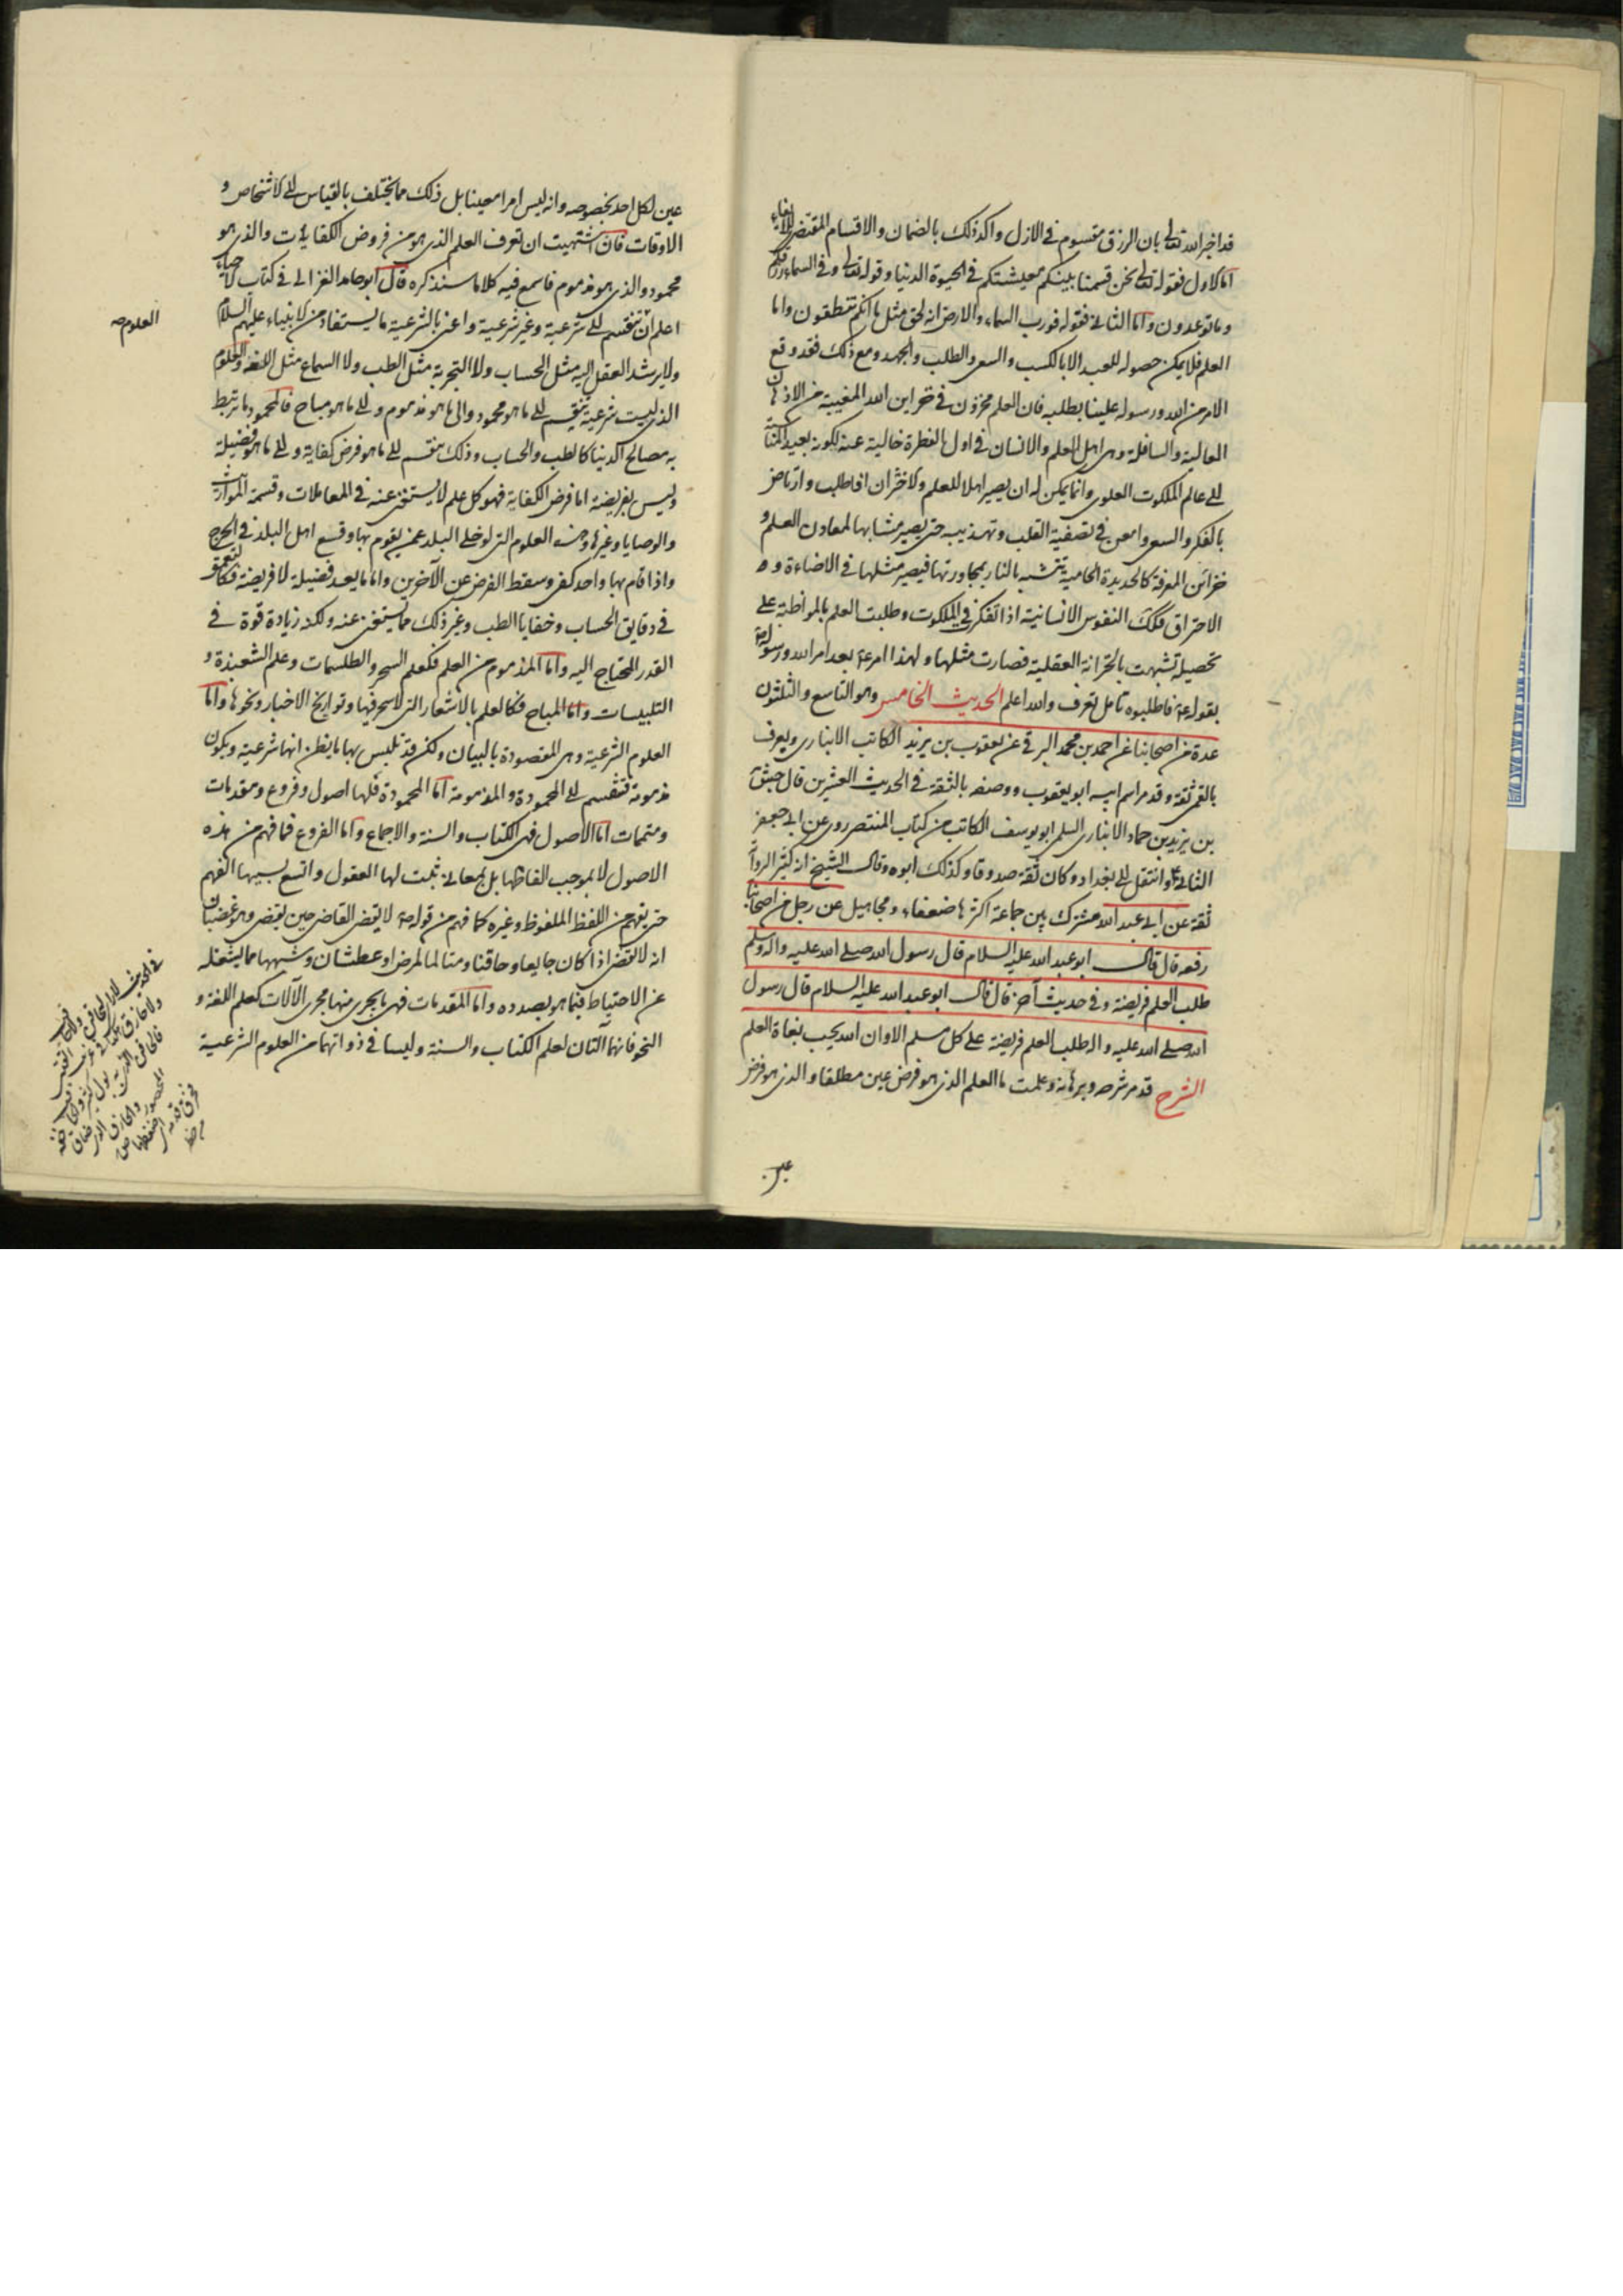 قد اخبر الله تعالى بان الرزق مقسوم في الازل واكد ذلك بالضمان والاقسام المقتضى للايفاء
اما الاول فقوله تعالى نحن قسمنا بينكم معيشتكم في الحيوة الدنيا وقوله تعالى وفي السماء رزقكم
وما توعدون واما الثاني فقوله فورب السماء والارض انه لحق مثل ما انكم تنطقون واما
العلم فلا يمكن حصوله للعبد الا بالكسب والسعى والطلب والجهد ومع ذلك فقد وقع
الامر من الله ورسوله علينا بطلبه فان العلم مخزون في خزاين الله المغيبة من الاذهان
العالية والسافلة وهى اهل العلم والانسان في اول الفطرة خالية عنه لكونه بعيد المناسبة
الى عالم الملكوت العلوى وانما يمكن له ان يصير اهلا للعلم ولاخزان اذا طلب وارتاض
بالفكر والسعى وامعن في تصفية القلب وتهذيبه حتى يصير مشابها لمعادن العلم و
خزائن المعرفة كالحديدة الحامية تتشبه بالنار بمجاورتها فيصير مثلها في الاضاءة و
الاحراق فكك النفوس الانسانية اذا تفكر في الملكوت وطلبت العلم بالمواظبة على
تحصيله تشبهت بالخزانة العقلية فصارت مثلها ولهذا امر ع بعد امر الله ورسوله ص
بقوله ع فاطلبوه تامل تعرف والله اعلم الحديث الخامس وهو التاسع والثلثون
عدة من اصحابنا عن احمد بن محمد البرقى عن يعقوب بن يزيد الكاتب الانبارى ويعرف
بالقمى ثقة وقد مر اسم ابيه ابو يعقوب ووصفه بالثقة في الحديث العشرين قال جش
بن يزيد بن حماد الانبارى السلمى ابو يوسف الكاتب من كتاب المنتصر روى عن ابى جعفر
الثاني ع وانتقل الى بغداد وكان ثقة صدوقا وكذلك ابوه وقال الشيخ انه كثير الرواية
ثقة عن ابى عبد الله مشترك بين جماعة اكثرها ضعفاء ومجاهيل عن رجل من اصحابنا
رفعه قال قال ابو عبد الله عليه السلام قال رسول الله صلى الله عليه واله وسلم
طلب العلم فريضة وفي حديث آخر قال قال ابو عبد الله عليه السلام قال رسول
الله صلى الله عليه واله طلب العلم فريضة على كل مسلم الا وان الله يحب بغاة العلم
الشرح قد مر شرحه وبرهانه وعلمت ما العلم الذى هو فرض عين مطلقا والذى هو فرض
عين
عين لكل احد بخصوصه وانه ليس امرا معينا بل ذلك مما يختلف بالقياس الى الاشخاص و
الاوقات فان اشتهيت ان تعرف العلم الذى هو من فروض الكفايات والذى هو
محمود والذى هو مذموم فاسمع فيه كلاما سنذكره قال ابو حامد الغزالى في كتاب الاحياء
اعلم ان تنقسم الى شرعية وغير شرعية واعنى بالشرعية ما يستفاد من الانبياء عليهم السلام
العلوم صح
ولا يرشد العقل اليه مثل الحساب ولا التجربة مثل الطب ولا السماع مثل اللغة والعلوم
الذى ليست شرعية تنقسم الى ما هو محمود والى ما هو مذموم والى ما هو مباح فالمحمود ما يرتبط
به مصالح الدنيا كالطب والحساب وذلك ينقسم الى ما هو فرض كفاية والى ما هو فضيلة
وليس بفريضة اما فرض الكفاية فهو كل علم لا يستغنى عنه في المعاملات وقسمة المواريث
والوصايا وغيرها وهذه العلوم التى لو خلى البلد عمن يقوم بها وقع اهل البلد في الحرج
واذا قام بها واحد كفى وسقط الفرض عن الآخرين واما ما يعد فضيلة لا فريضة فكالتعمق
في دقايق الحساب وخفايا الطب وغير ذلك مما يستغنى عنه ولكنه زيادة قوة في
القدر المحتاج اليه واما المذموم من العلم فكعلم السحر والطلسمات وعلم الشعبذة و
التلبيسات واما المباح فكالعلم بالاشعار التى لا سحر فيها وتواريخ الاخبار ونحوها واما
العلوم الشرعية وهى المقصودة بالبيان ولكن قد تلبس بها ما يظن انها شرعية ويكون
مذمومة فتنقسم الى المحمودة والمذمومة اما المحمودة فلها اصول وفروع ومقدمات
ومتممات اما الاصول فهى الكتاب والسنة والاجماع واما الفروع فما فهم من هذه
الاصول لا بموجب الفاظها بل بمعانى تثبت لها العقول واتسع بسببها الفهم
حتى يفهم من اللفظ الملفوظ وغيره كما فهم من قوله ص لا يقضى القاضى حين يقضى وهو غضبان
انه لا يقضى اذا كان جايعا وحاقنا ومتالما لمرض او عطشان وشبهها مما يشغله
عن الاحتياط فيما هو بصدده واما المقدمات فهى ما يجرى منها مجرى الآلات كعلم اللغة و
النحو فانهما آلتان لعلم الكتاب والسنة وليسا في ذواتهما من العلوم الشرعية